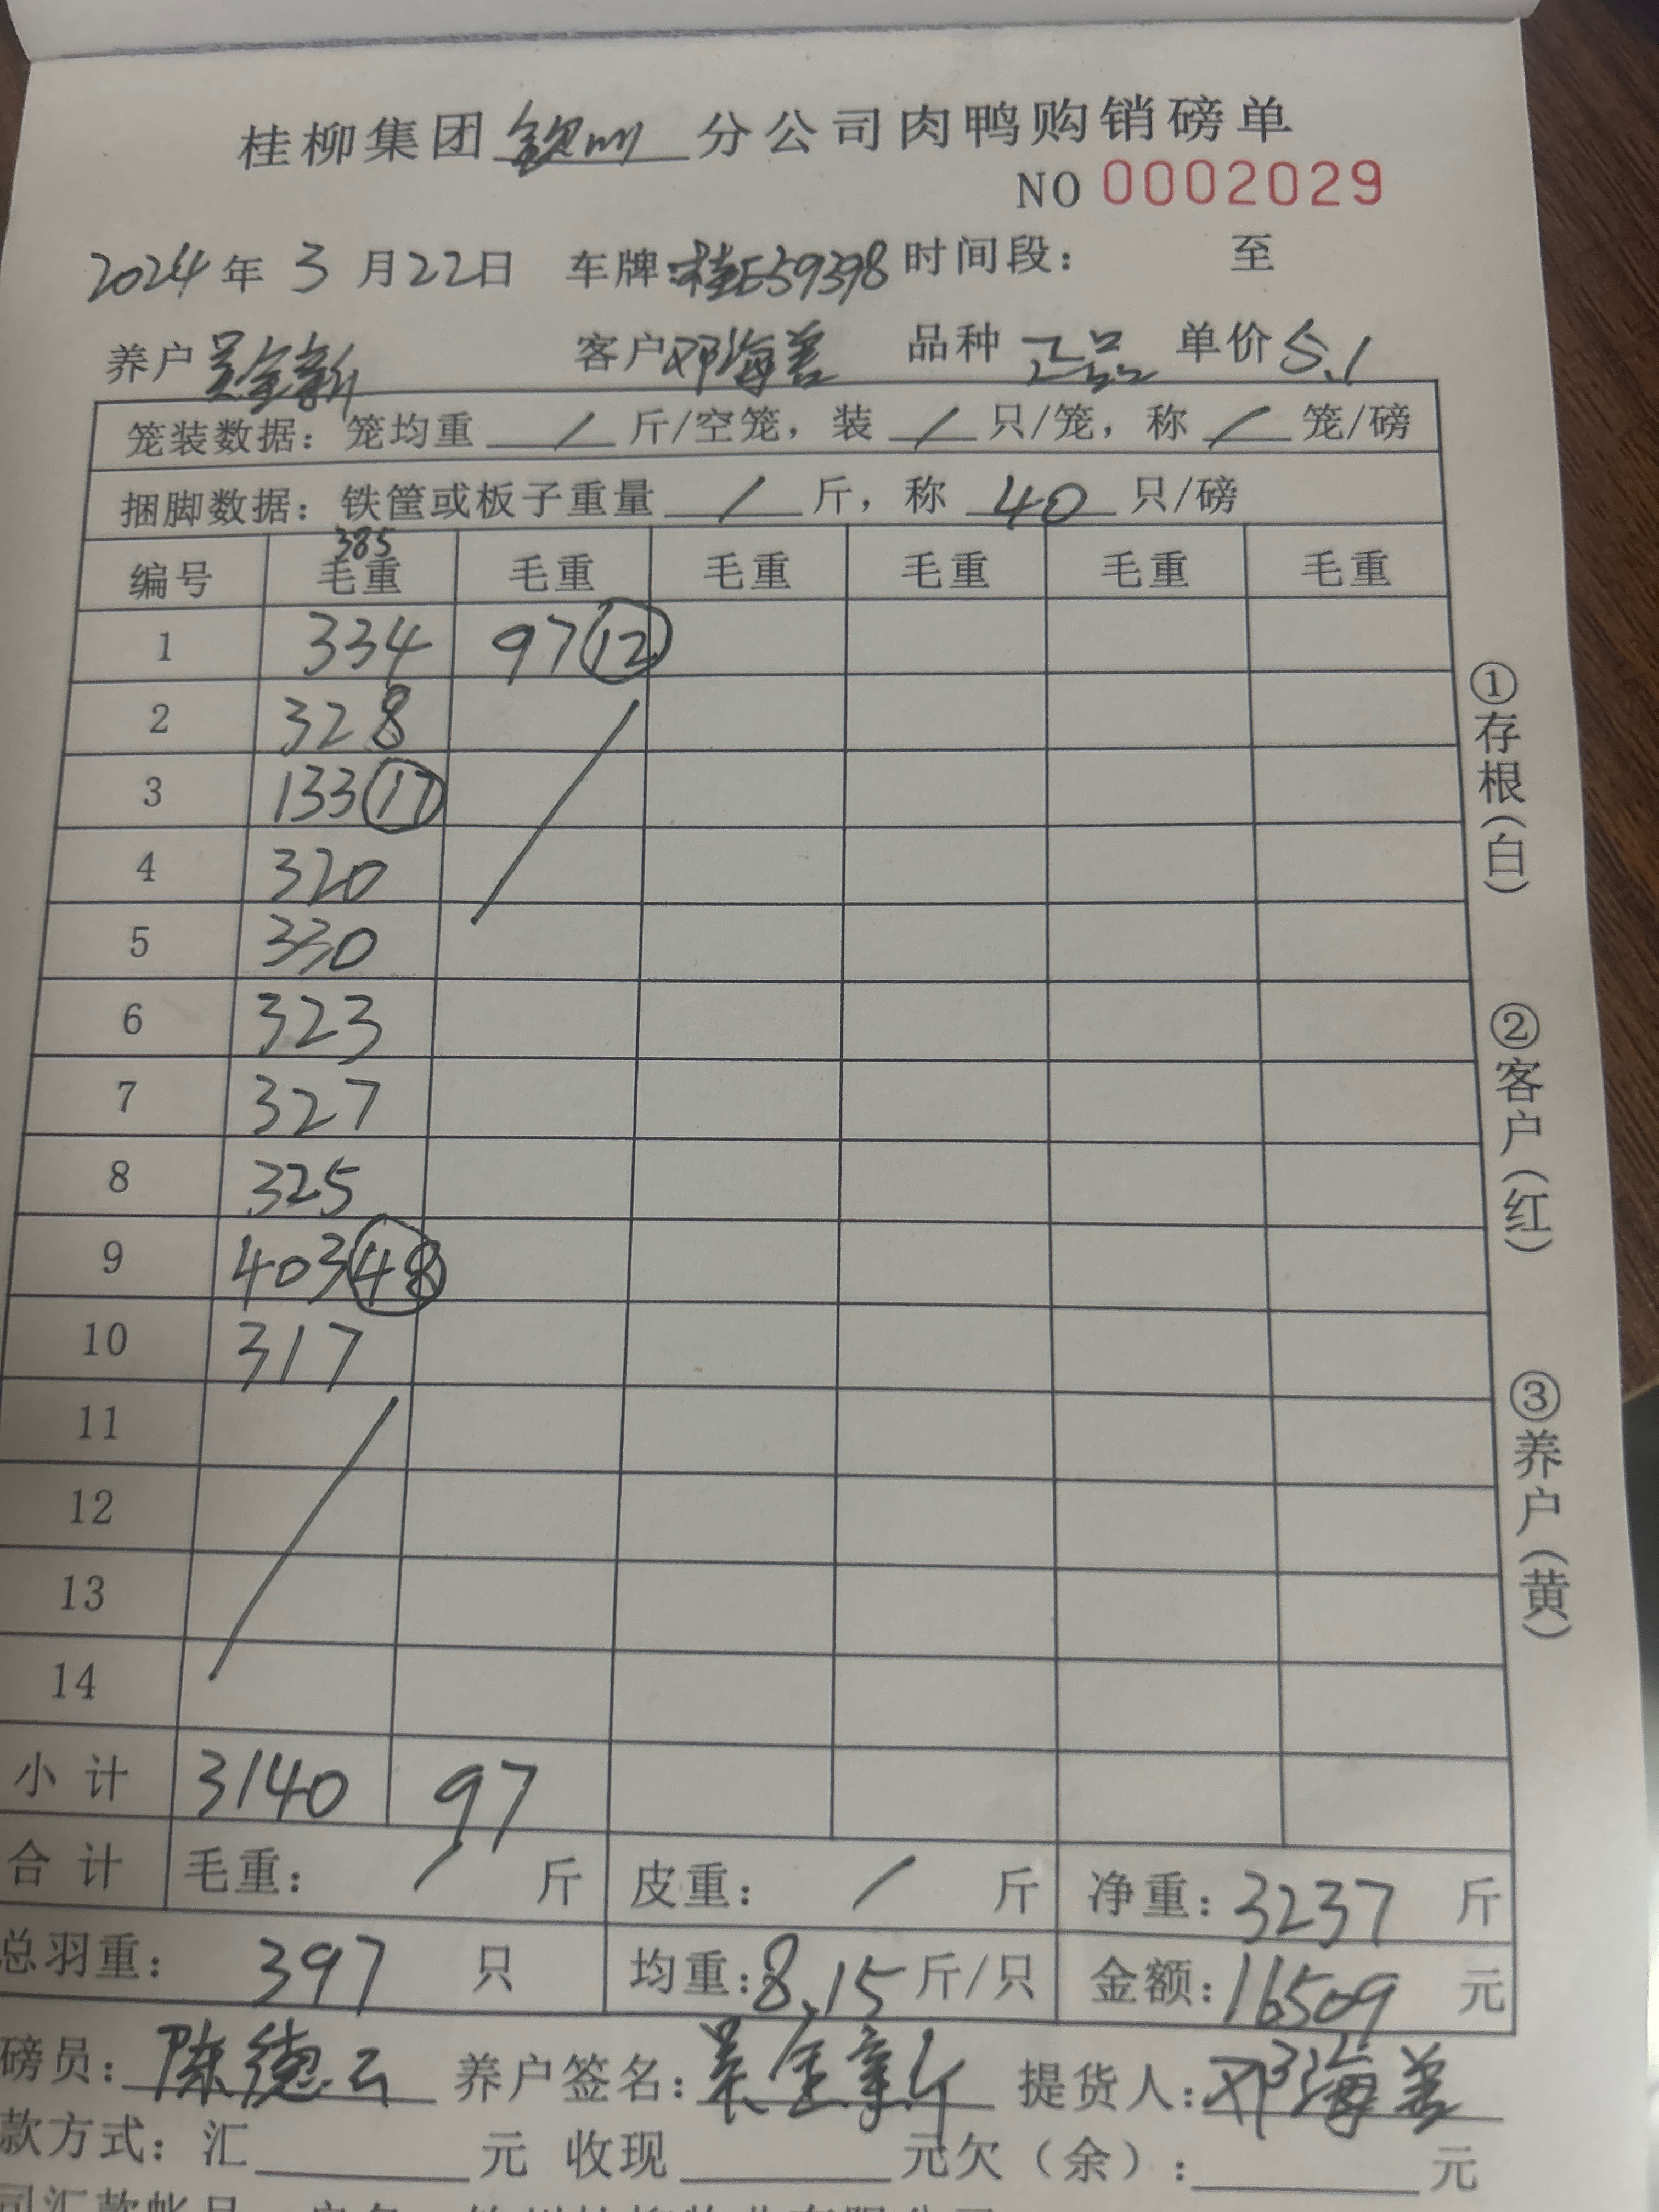 桂柳集团钦州分公司肉鸭购销磅单
NO 0002029
2024年3月22日 车牌:桂E59398 时间段: 至
养户吴金新 客户邓海善 品种 正品 单价5.1
笼装数据: 笼均重 / 斤/空笼, 装 / 只/笼, 称 / 笼/磅
捆脚数据: 铁筐或板子重量 / 斤, 称 40 只/磅
385
编号 毛重 毛重 毛重 毛重 毛重 毛重
1 334 97 ⑫
2 328
3 133 ⑰
4 320
5 330
6 323
7 327
8 325
9 403 ㊽
10 317
11
12
13
14
小计 3140 97
合计 毛重: / 斤 皮重: / 斤 净重: 3237 斤
总羽重: 397 只 均重: 8.15 斤/只 金额: 16509 元
磅员: 陈德云 养户签名: 吴金新 提货人: 邓海善
款方式: 汇 元 收现 元欠(余): 元
①存根(白)
②客户(红)
③养户(黄)